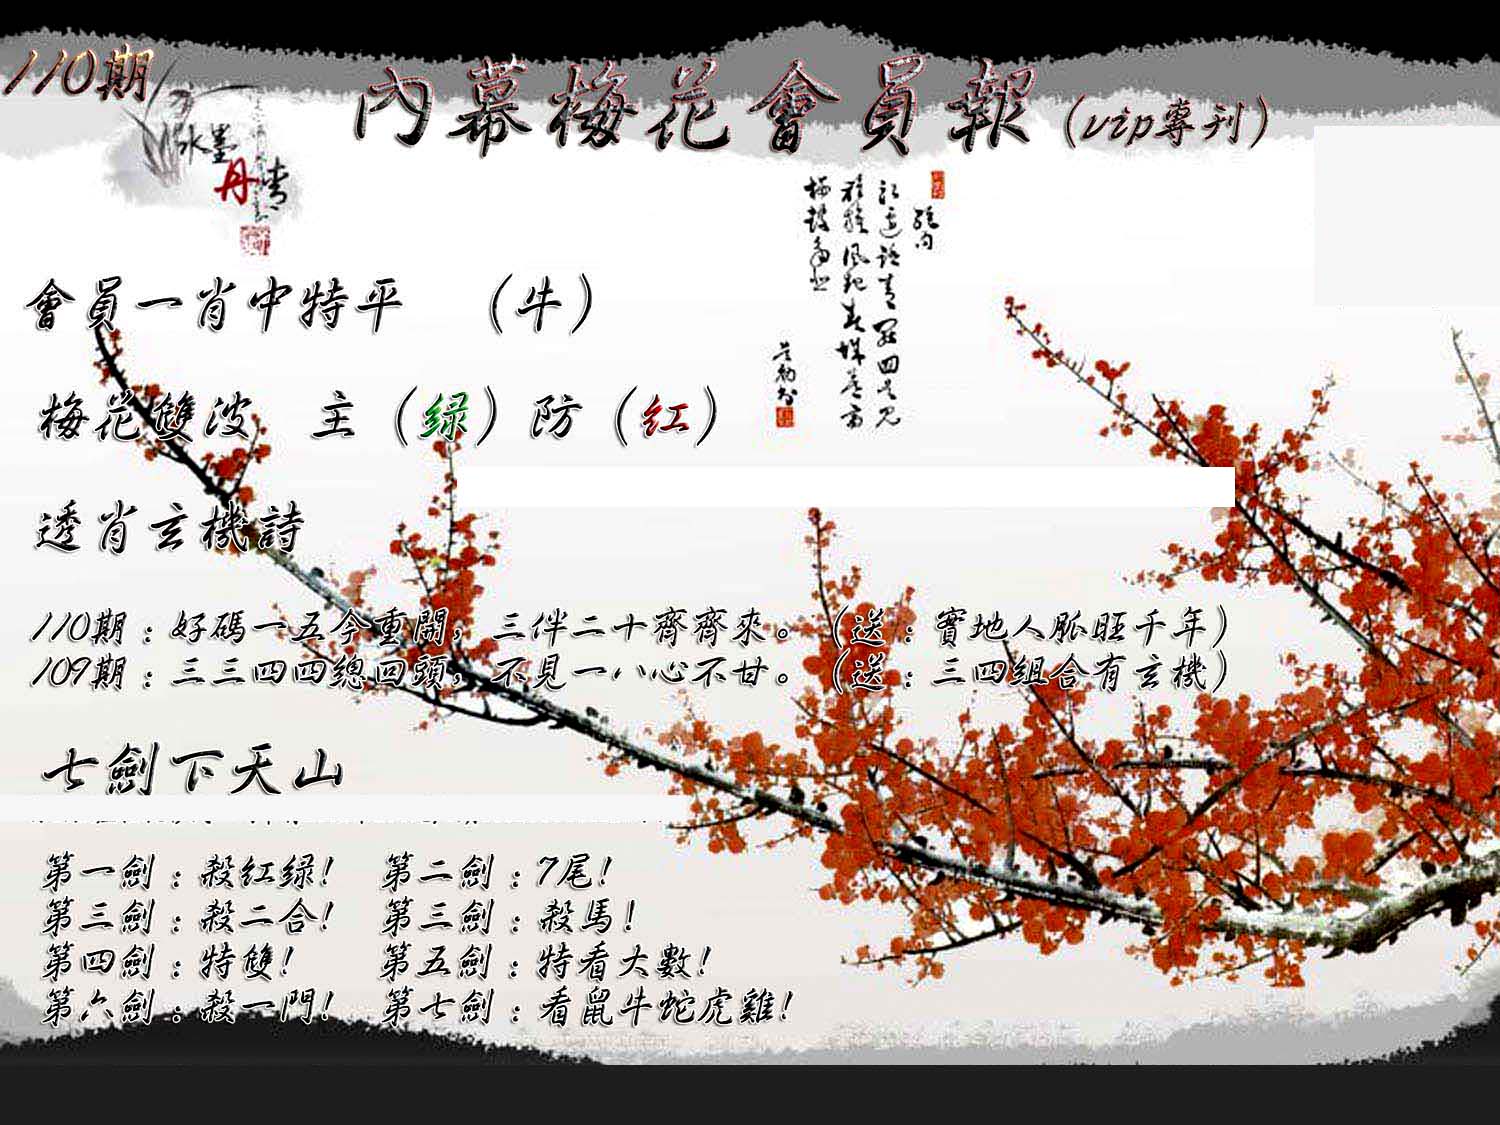 110期
內幕梅花會員報(vip專刊)
水墨
丹青
會員一肖中特平 (牛)
梅花雙波 主(绿)防(紅)
透肖玄機詩
110期:好碼一五今重開,三伴二十齊齊來。(送:實地人脈旺千年)
109期:三三四四總回頭,不見一八心不甘。(送:三四組合有玄機)
七劍下天山
第一劍:殺紅绿! 第二劍:7尾!
第三劍:殺二合! 第三劍:殺馬!
第四劍:特雙! 第五劍:特看大數!
第六劍:殺一門! 第七劍:看鼠牛蛇虎雞!